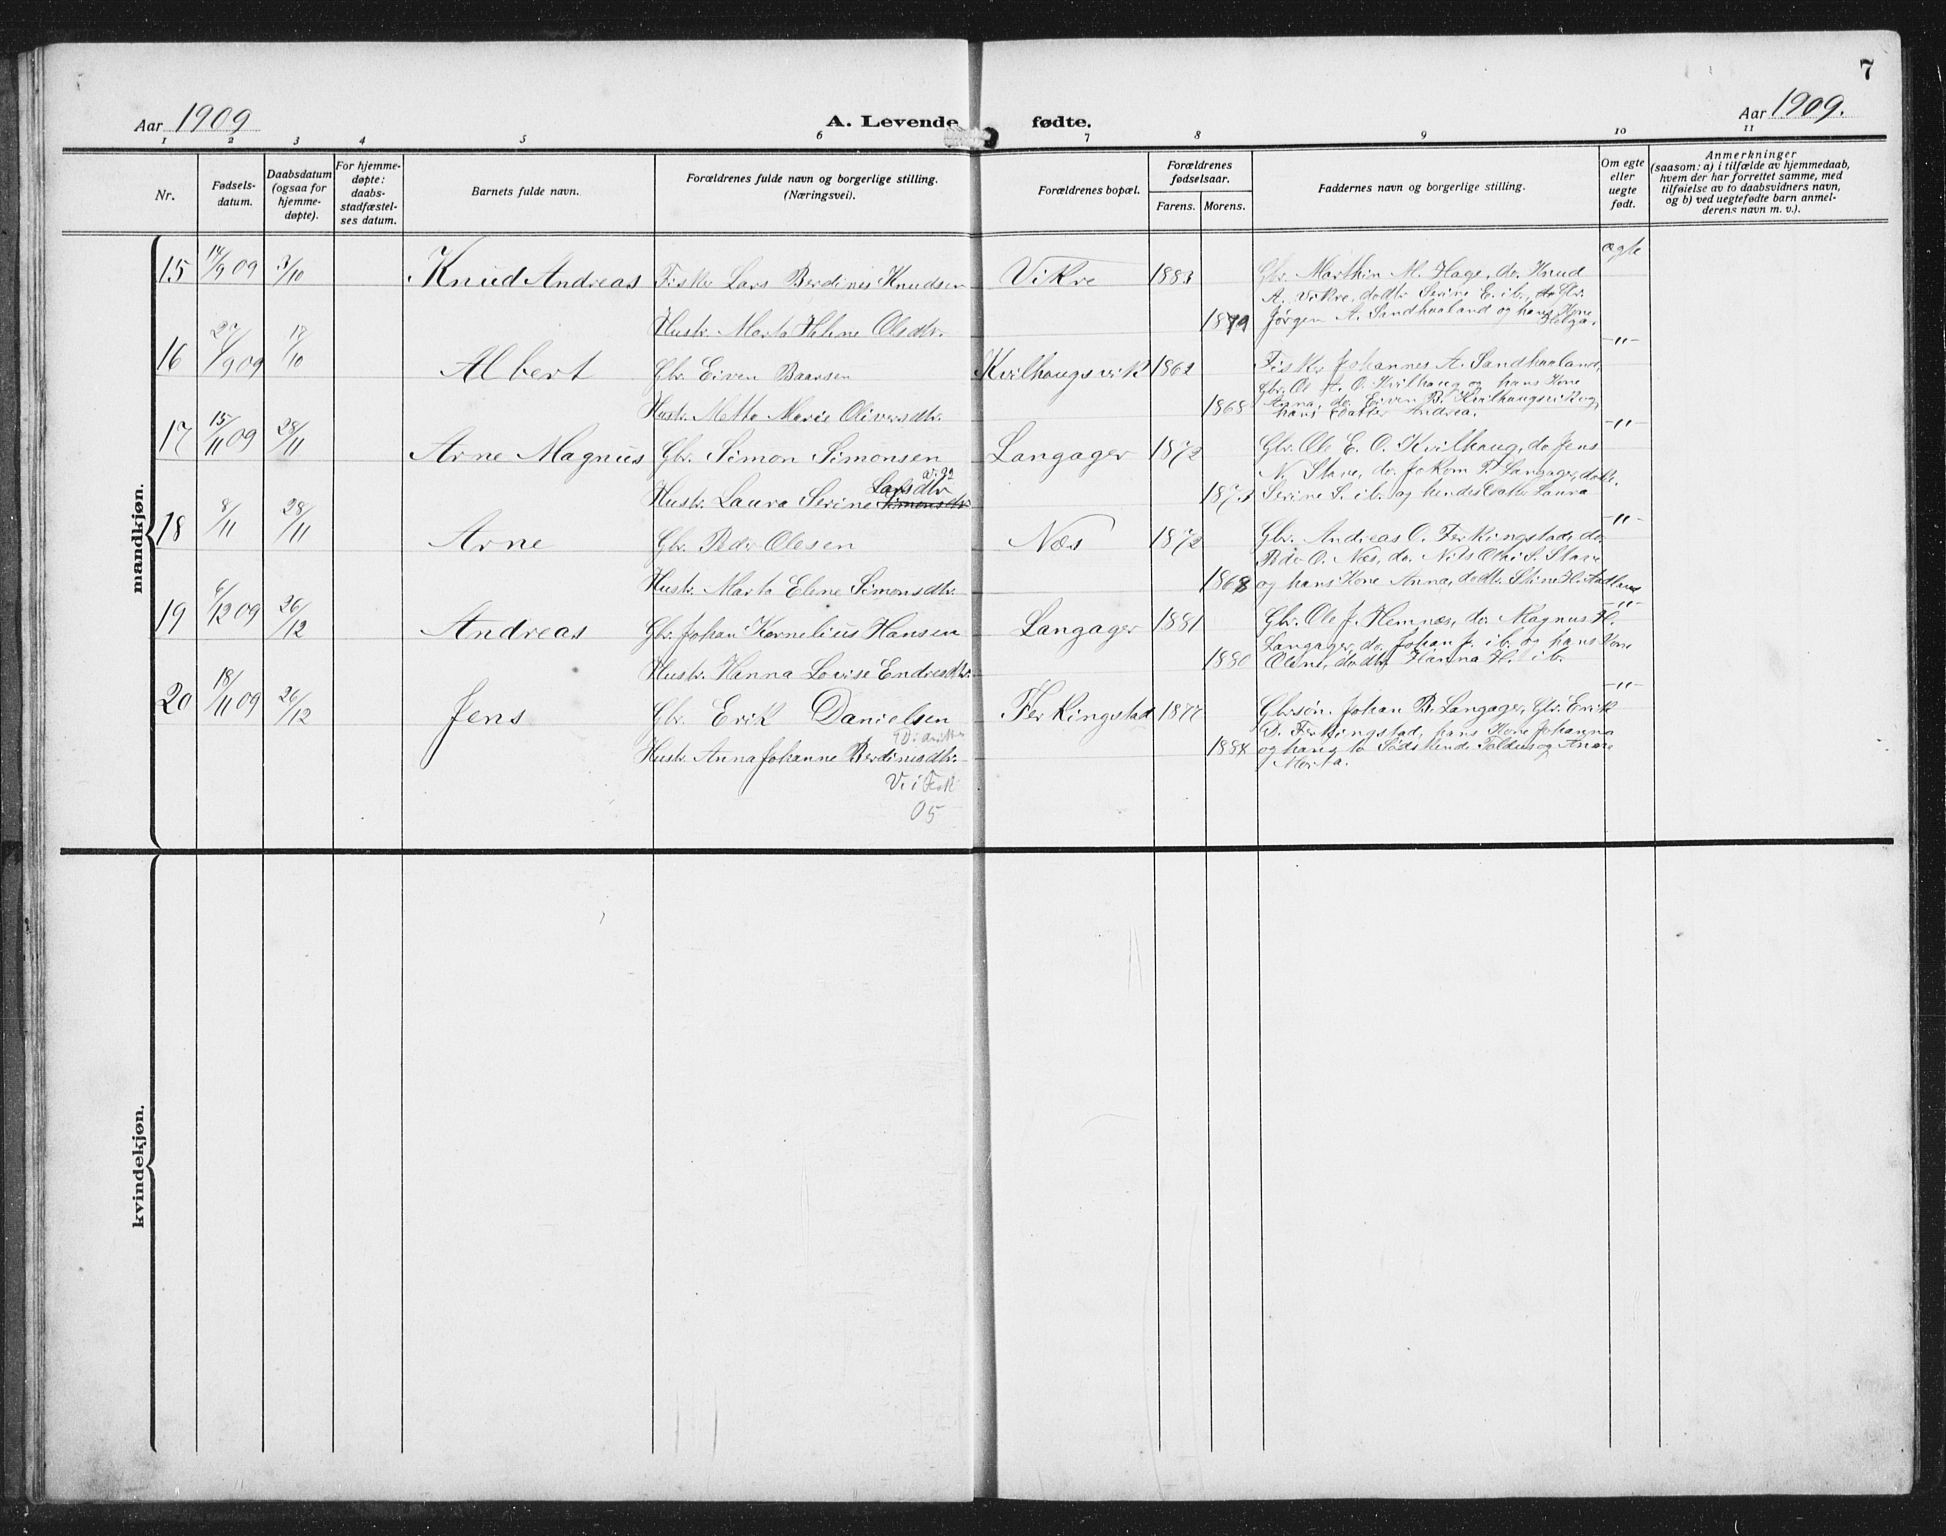 7
Aar 1909
A. Levende fødte.
Aar 1909.
1 2 3 4 5 6 7 8 9 10 11
Nr.
Fødsels-
datum.
Daabsdatum
(ogsaa for
hjemme-
døpte).
For hjemme-
døpte:
daabs-
stadfæstel-
ses datum.
Barnets fulde navn.
Forældrenes fulde navn og borgerlige stilling.
(Næringsvei).
Forældrenes bopæl.
Forældrenes
fødselsaar.
Farens. Morens.
Faddernes navn og borgerlige stilling.
Om egte
eller
uegte
født.
Anmerkninger
(saasom: a) i tilfælde av hjemmedaab,
hvem der har forrettet samme, med
tilføielse av to daabsvidners navn,
og b) ved uegtefødte barn anmel-
derens navn m. v.).
mandkjøn.
15 14/9 09 3/10 Knud Andreas Fisker Lars Berdines Knudsen Vikre 1883 Gbr. Marthin M. Hage, do. Knud ægte
A. Vikre, do dtr Serine E. ib., do Gbr.
Hustr. Marta Helene Olsdtr. 1879 Jørgen A. Sandhaaland og hans Kone
Helga.
16 27/9 09 17/10 Albert Gbr. Eiven Baarsen Kvilhaugsvik 1862 Fisker Johannes A. Sandhaaland, -"-
Gbr. Ole A. O. Kvilhaug og hans Kone
Hustr. Metta Marie Oliversdtr. 1868 Anna, do. Eiven B. Kvilhaugsvik og
hans Datter Andrea.
17 15/11 09 28/11 Arne Magnus Gbr. Simon Simonsen Langager 1872 Gbr. Ole E. O. Kvilhaug, do Jens -"-
N. Stave, do. Jokom P. Langager,
Larsdtr
Hustr. Laura Serine Simonsdtr 1873 Serine S. ib. og hendes Datter Laura
18 8/11 28/11 Arne Gbr. Peder Olesen Næs 1872 Gbr. Andreas O. Ferkingstad, do. -"-
Peder O. Næs, do. Nils Olai S. Stave
Hustr. Marta Elene Simonsdtr. 1868 og hans Kone Anna, do dtr. Stine H.
19 6/12 09 26/12 Andreas Gbr. Johan Kornelius Hansen Langager 1881 Gbr. Ole J. Hemnæs, do. Magnus H. -"-
Langager, do. Johan J. ib. og hans Kone
Hustr. Hanna Lovise Endresdtr. 1880 Olene, do dtr. Hanna H. ib.
20 18/11 09 26/12 Jens Gbr. Erik Danielsen Ferkingstad 1877 Gbr.søn. Johan B. Langager, Gbr. Erik -"-
D. Ferkingstad, hans Kone Johanna
Hustr. Anna Johanne Berdinesdtr. 1884 og hans to Sødskende Toldus og Anne
Marta.
05
kvindekjøn.